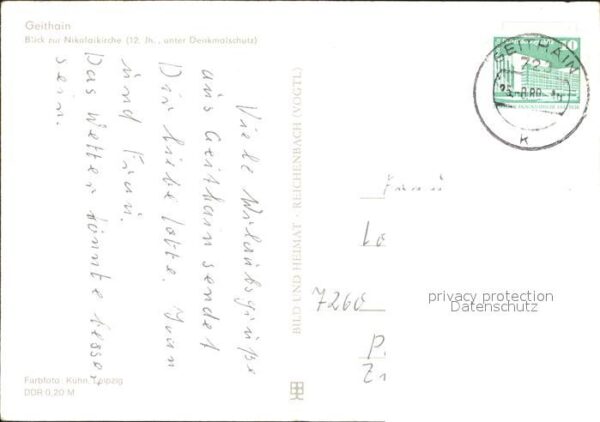 Geithain
Blick zur Nikolaikirche (12. Jh., unter Denkmalschutz)
Viele Urlaubsgrüße
aus Geithain sendet
Dir liebe Lotte. Ivan
und Frau.
Das Wetter könnte besser
sein.
BILD UND HEIMAT · REICHENBACH (VOGTL)
GEITHAIN
72
k
10
Lo
7260
P
privacy protection
Datenschutz
Farbfoto: Kuhn, Leipzig
DDR 0,20 M